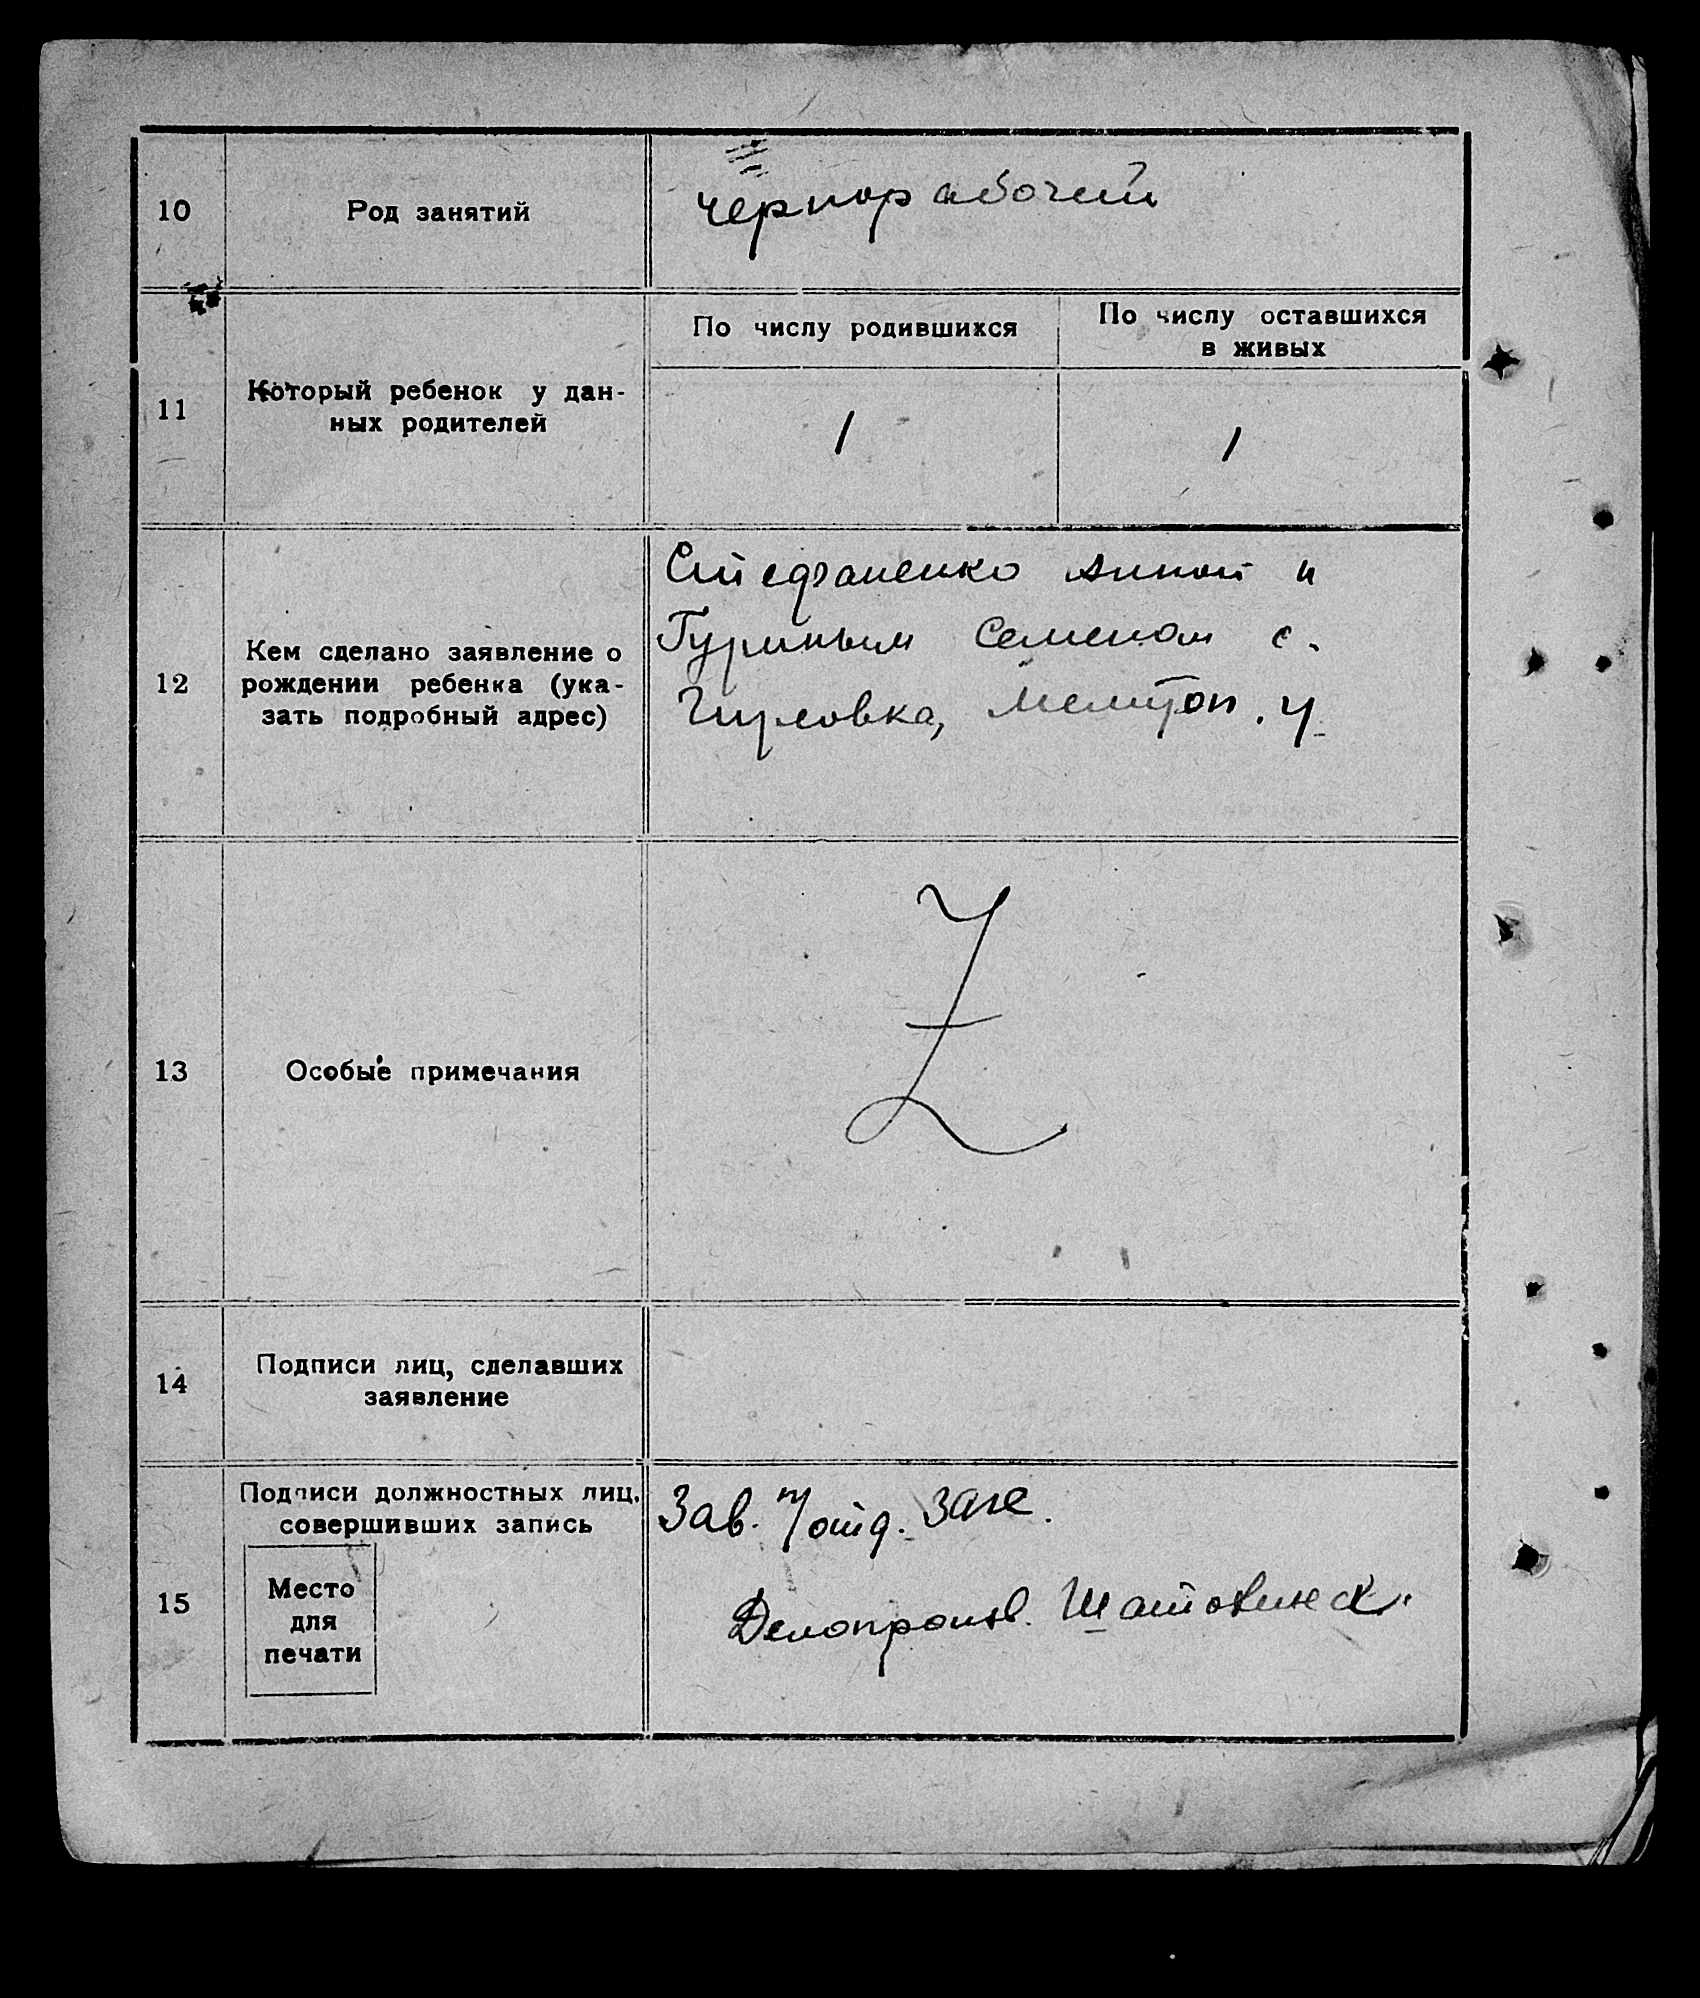 10
Род занятий
чернорабочий
11
Который ребенок у дан-
ных родителей
По числу родившихся
По числу оставшихся
в живых
1
1
12
Кем сделано заявление о
рождении ребенка (ука-
зать подробный адрес)
Стефаненко Анной и
Гуриным Семеном с.
Гирсовка, Мелитоп. у.
13
Особые примечания
Z
14
Подписи лиц, сделавших
заявление
15
Подписи должностных лиц,
совершивших запись
Место
для
печати
Зав. п/отд. Загс.
Делопроизв.